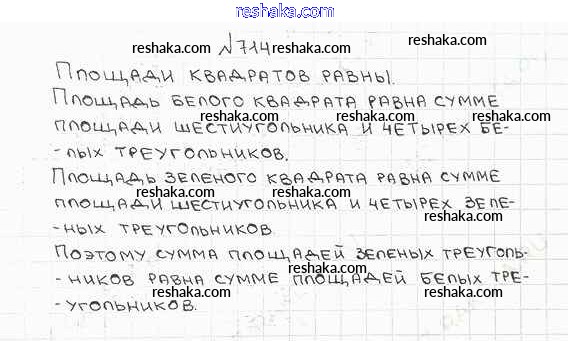 reshaka.com
reshaka.com №714 reshaka.com
ПЛОЩАДИ КВАДРАТОВ РАВНЫ.
reshaka.com reshaka.com
ПЛОЩАДЬ БЕЛОГО КВАДРАТА РАВНА СУММЕ
ПЛОЩАДИ ШЕСТИУГОЛЬНИКА И ЧЕТЫРЕХ БЕ-
reshaka.com reshaka.com
-ЛЫХ ТРЕУГОЛЬНИКОВ.
ПЛОЩАДЬ ЗЕЛЕНОГО КВАДРАТА РАВНА СУММЕ
reshaka.com reshaka.com
ПЛОЩАДИ ШЕСТИУГОЛЬНИКА И ЧЕТЫРЕХ ЗЕЛЕ-
-НЫХ ТРЕУГОЛЬНИКОВ
reshaka.com reshaka.com
ПОЭТОМУ СУММА ПЛОЩАДЕЙ ЗЕЛЕНЫХ ТРЕУГОЛЬ-
reshaka.com
-НИКОВ РАВНА СУММЕ ПЛОЩАДЕЙ БЕЛЫХ ТРЕ-
reshaka.com reshaka.com
-УГОЛЬНИКОВ.